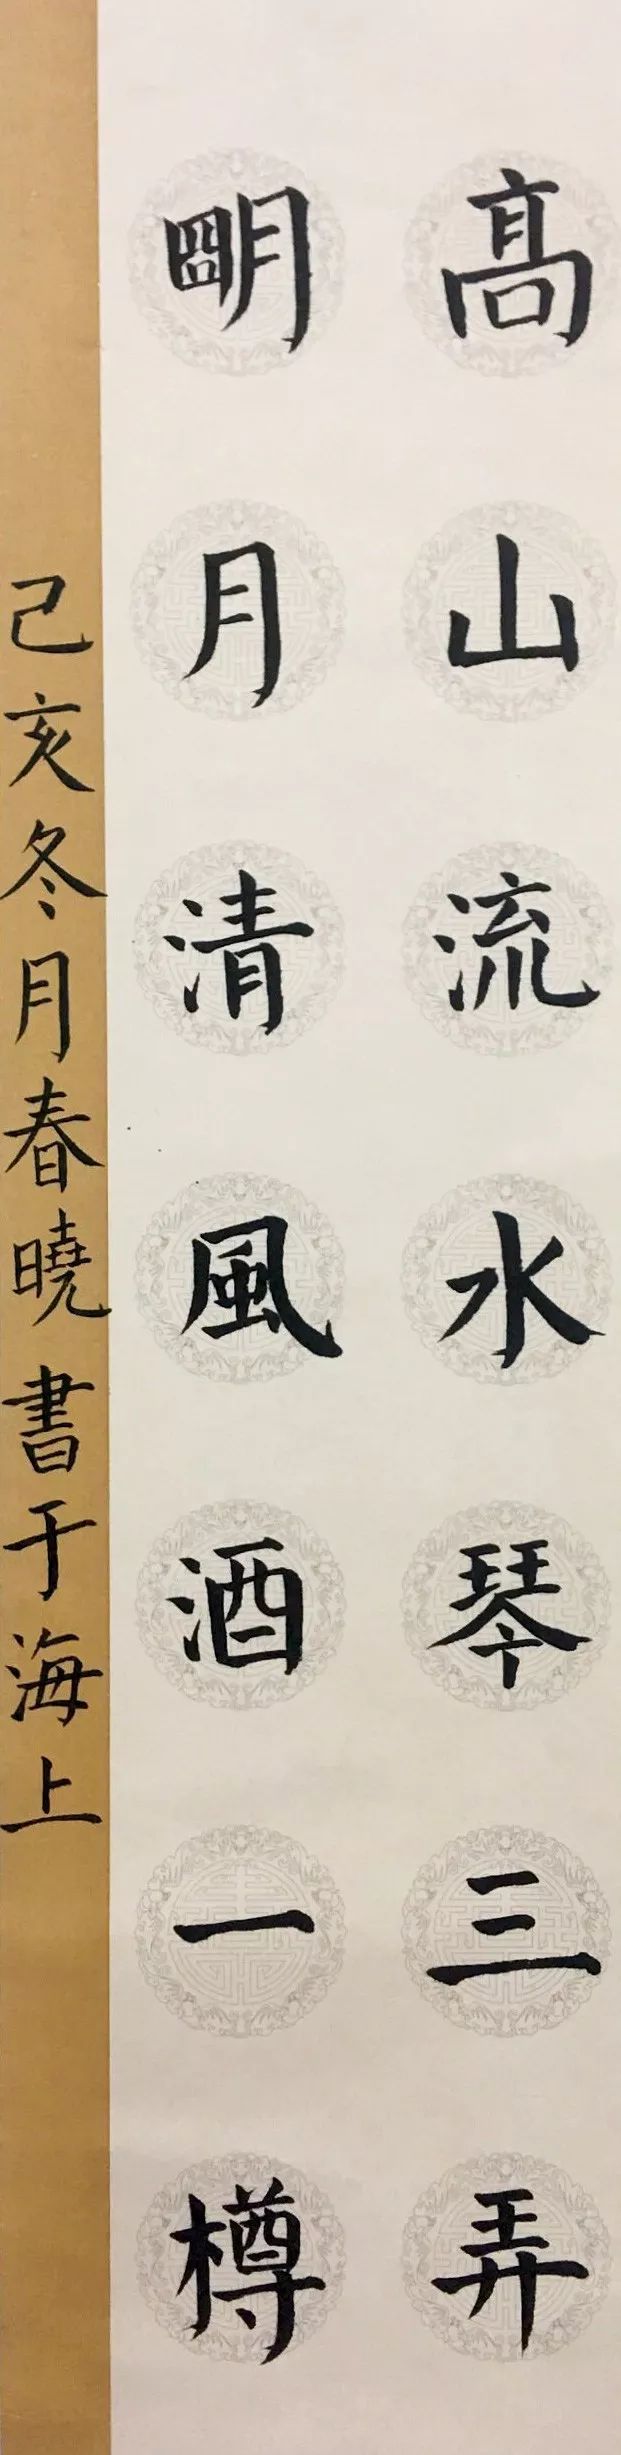 髙山流水琴三弄
朙月清風酒一樽
己亥冬月春曉書于海上